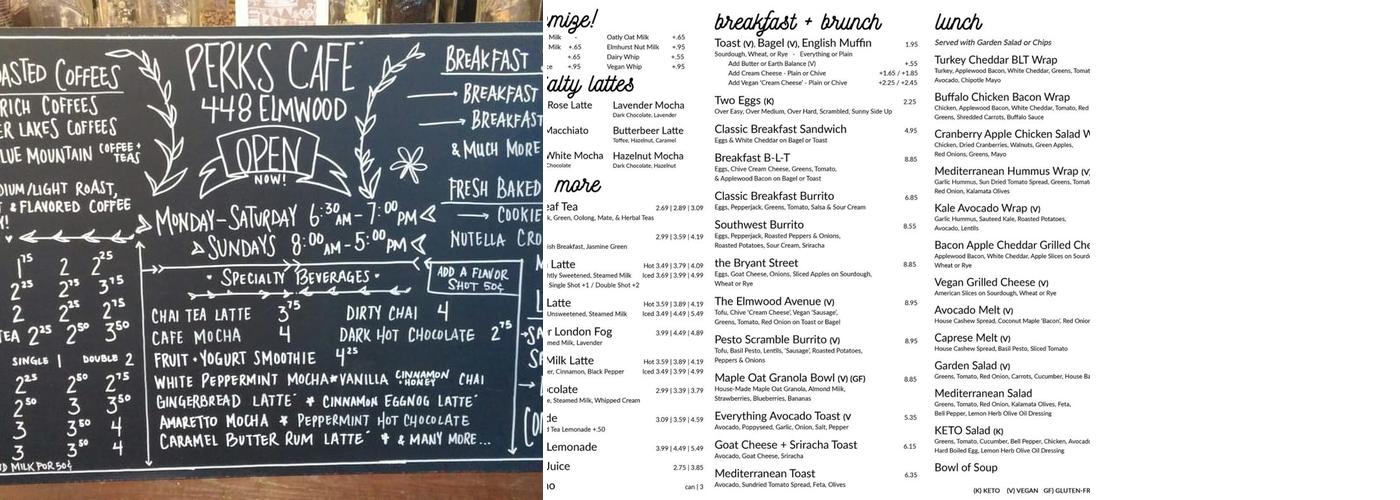 OASTED COFFEES
RICH COFFEES
ER LAKES COFFEES
LUE MOUNTAIN COFFEE + TEAS
DIUM/LIGHT ROAST,
& FLAVORED COFFEE
1.75 2 2.25
2.25 2.75 3.75
2 2.25 2.75
TEA 2.25 2.50 3.50
SINGLE 1 DOUBLE 2
2.25 2.50 2.75
2.50 3 3.50
3 3.50 4
3 3.50 4
D MILK FOR 50¢
PERKS CAFE
448 ELMWOOD
OPEN
NOW!
MONDAY-SATURDAY 6:30 AM-7:00 PM
SUNDAYS 8:00 AM-5:00 PM
• SPECIALTY BEVERAGES •
ADD A FLAVOR
SHOT 50¢
CHAI TEA LATTE 3.75 DIRTY CHAI 4
CAFE MOCHA 4 DARK HOT CHOCOLATE 2.75
FRUIT • YOGURT SMOOTHIE 4.25
WHITE PEPPERMINT MOCHA * VANILLA CINNAMON + HONEY CHAI
GINGERBREAD LATTE * CINNAMON EGGNOG LATTE
AMARETTO MOCHA * PEPPERMINT HOT CHOCOLATE
CARAMEL BUTTER RUM LATTE * & MANY MORE...
BREAKFAST
BREAKFAST
BREAKFAST
& MUCH MORE
FRESH BAKED
COOKIE
NUTELLA CRO
mize!
Milk - Oatly Oat Milk +.65
Milk +.65 Elmhurst Nut Milk +.95
+.65 Dairy Whip +.55
ce +.95 Vegan Whip +.95
ialty lattes
Rose Latte Lavender Mocha
Dark Chocolate, Lavender
Macchiato Butterbeer Latte
Toffee, Hazelnut, Caramel
White Mocha Hazelnut Mocha
Chocolate Dark Chocolate, Hazelnut
more
eaf Tea 2.69 | 2.89 | 3.09
k, Green, Oolong, Mate, & Herbal Teas
2.99 | 3.59 | 4.19
ish Breakfast, Jasmine Green
Latte Hot 3.49 | 3.79 | 4.09
htly Sweetened, Steamed Milk Iced 3.69 | 3.99 | 4.99
Single Shot +1 / Double Shot +2
Latte Hot 3.59 | 3.89 | 4.19
Unsweetened, Steamed Milk Iced 3.49 | 4.49 | 5.49
r London Fog 3.99 | 4.49 | 4.89
med Milk, Lavender
Milk Latte Hot 3.59 | 3.89 | 4.19
er, Cinnamon, Black Pepper Iced 3.49 | 3.99 | 4.99
colate 2.99 | 3.39 | 3.79
e, Steamed Milk, Whipped Cream
de 3.09 | 3.59 | 4.59
d Tea Lemonade +.50
Lemonade 3.99 | 4.49 | 5.49
Juice 2.75 | 3.85
no can | 3
breakfast + brunch
Toast (V), Bagel (V), English Muffin 1.95
Sourdough, Wheat, or Rye - Everything or Plain
Add Butter or Earth Balance (V) +.55
Add Cream Cheese - Plain or Chive +1.65 / +1.85
Add Vegan 'Cream Cheese' - Plain or Chive +2.25 / +2.45
Two Eggs (K) 2.25
Over Easy, Over Medium, Over Hard, Scrambled, Sunny Side Up
Classic Breakfast Sandwich 4.95
Eggs & White Cheddar on Bagel or Toast
Breakfast B-L-T 8.85
Eggs, Chive Cream Cheese, Greens, Tomato,
& Applewood Bacon on Bagel or Toast
Classic Breakfast Burrito 6.85
Eggs, Pepperjack, Greens, Tomato, Salsa & Sour Cream
Southwest Burrito 8.55
Eggs, Pepperjack, Roasted Peppers & Onions,
Roasted Potatoes, Sour Cream, Sriracha
the Bryant Street 8.85
Eggs, Goat Cheese, Onions, Sliced Apples on Sourdough,
Wheat or Rye
The Elmwood Avenue (V) 8.95
Tofu, Chive 'Cream Cheese', Vegan 'Sausage',
Greens, Tomato, Red Onion on Toast or Bagel
Pesto Scramble Burrito (V) 8.95
Tofu, Basil Pesto, Lentils, 'Sausage', Roasted Potatoes,
Peppers & Onions
Maple Oat Granola Bowl (V) (GF) 8.85
House-Made Maple Oat Granola, Almond Milk,
Strawberries, Blueberries, Bananas
Everything Avocado Toast (V 5.35
Avocado, Poppyseed, Garlic, Onion, Salt, Pepper
Goat Cheese + Sriracha Toast 6.15
Avocado, Goat Cheese, Sriracha
Mediterranean Toast 6.35
Avocado, Sundried Tomato Spread, Feta, Olives
lunch
Served with Garden Salad or Chips
Turkey Cheddar BLT Wrap
Turkey, Applewood Bacon, White Cheddar, Greens, Tomat
Avocado, Chipotle Mayo
Buffalo Chicken Bacon Wrap
Chicken, Applewood Bacon, White Cheddar, Tomato, Red
Greens, Shredded Carrots, Buffalo Sauce
Cranberry Apple Chicken Salad W
Chicken, Dried Cranberries, Walnuts, Green Apples,
Red Onions, Greens, Mayo
Mediterranean Hummus Wrap (V
Garlic Hummus, Sun Dried Tomato Spread, Greens, Tomato
Red Onion, Kalamata Olives
Kale Avocado Wrap (V)
Garlic Hummus, Sauteed Kale, Roasted Potatoes,
Avocado, Lentils
Bacon Apple Cheddar Grilled Che
Applewood Bacon, White Cheddar, Apple Slices on Sourd
Wheat or Rye
Vegan Grilled Cheese (V)
American Slices on Sourdough, Wheat or Rye
Avocado Melt (V)
House Cashew Spread, Coconut Maple 'Bacon', Red Onion
Caprese Melt (V)
House Cashew Spread, Basil Pesto, Sliced Tomato
Garden Salad (V)
Greens, Tomato, Red Onion, Carrots, Cucumber, House Ba
Mediterranean Salad
Greens, Tomato, Red Onion, Kalamata Olives, Feta,
Bell Pepper, Lemon Herb Olive Oil Dressing
KETO Salad (K)
Greens, Tomato, Cucumber, Bell Pepper, Chicken, Avocado
Hard Boiled Egg, Lemon Herb Olive Oil Dressing
Bowl of Soup
(K) KETO (V) VEGAN GF) GLUTEN-FR